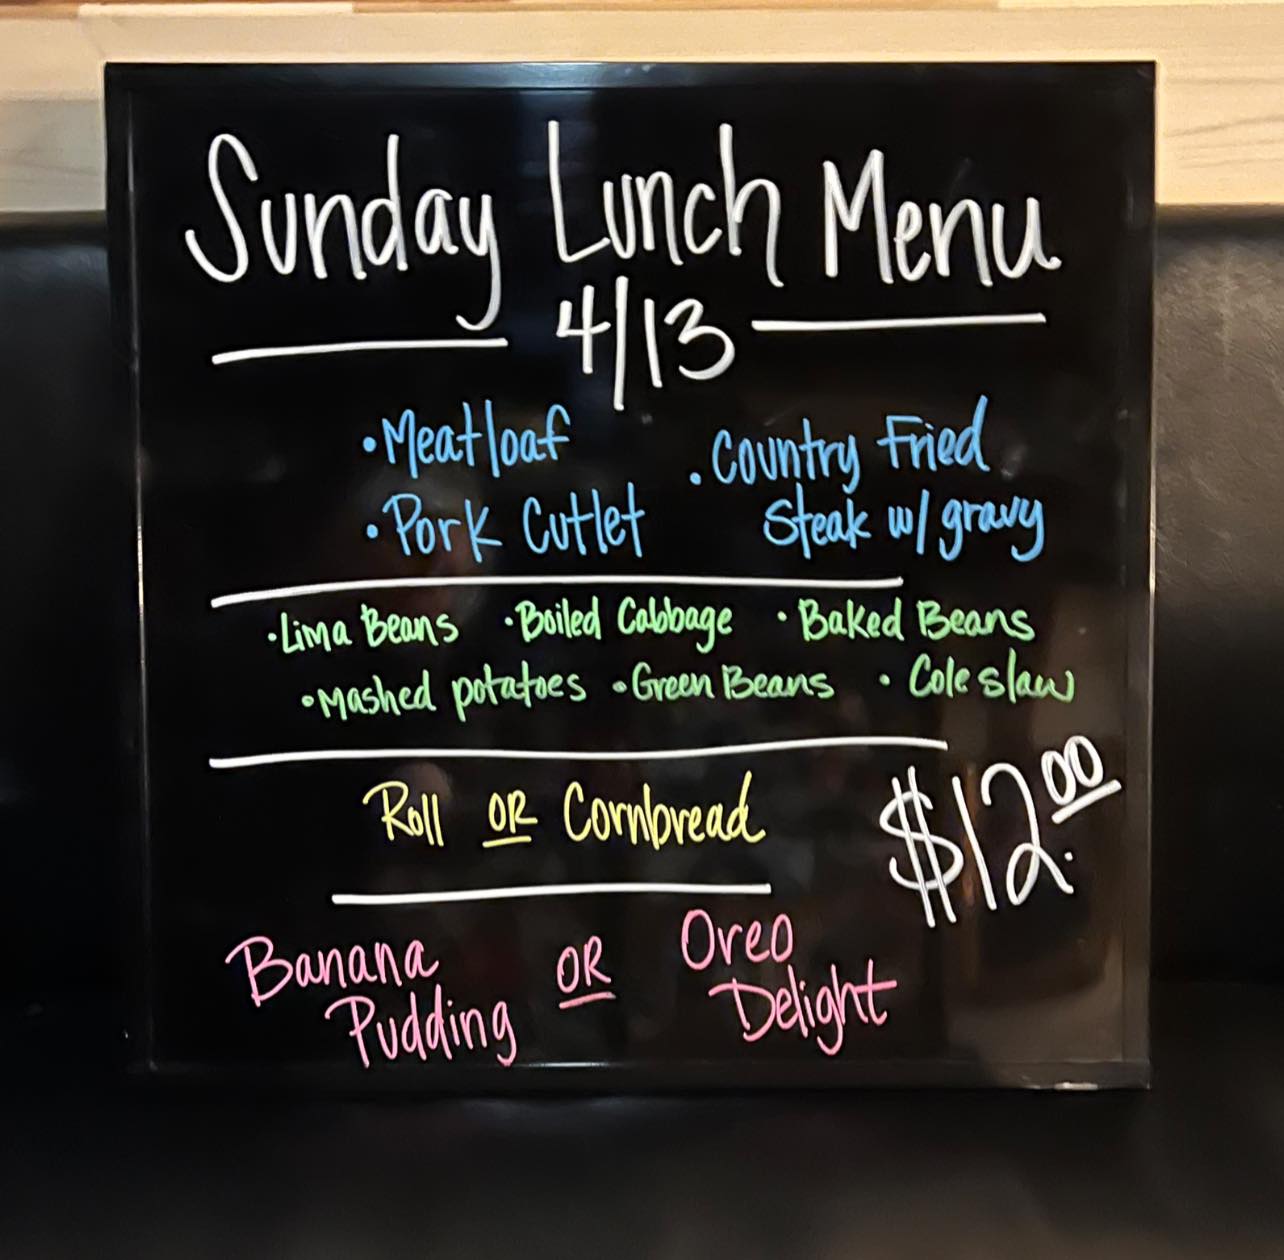 Sunday Lunch Menu
4/13
•Meatloaf •Country Fried
•Pork Cutlet Steak w/ gravy
•Lima Beans •Boiled Cabbage •Baked Beans
•Mashed potatoes •Green Beans • Cole slaw
Roll OR Cornbread $12.00
Banana OR Oreo
Pudding Delight